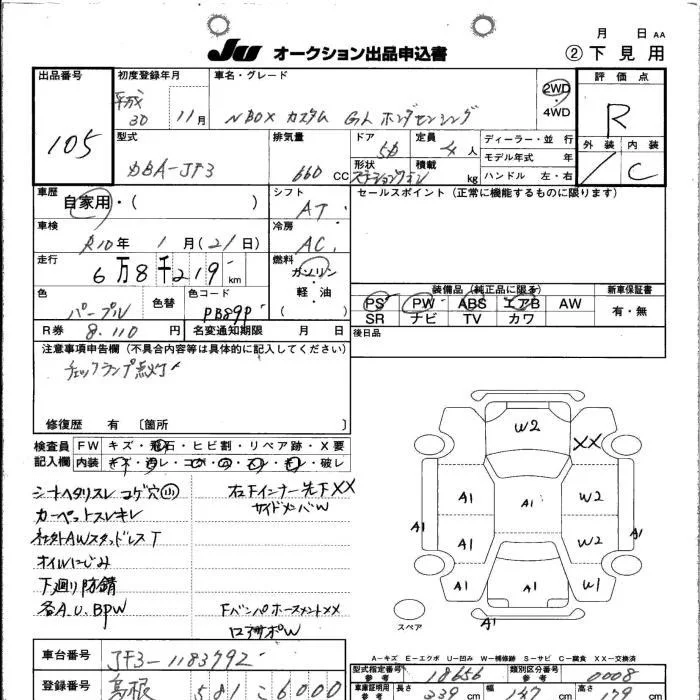 JU オークション出品申込書
月 日 AA
② 下見用
出品番号
105
初度登録年月
平成30 11月
車名・グレード
NBOX カスタム GL ホンダセンシング
2WD
4WD
評価点
R
外装 内装
C
型式
DBA-JF3
排気量
660 CC
ドア
5D
定員
4人
形状
ステーションワゴン
積載
kg
ディーラー・並行
モデル年式 年
ハンドル 左・右
車歴
自家用・( )
シフト
AT
セールスポイント(正常に機能するものに限ります)
車検
R10年 1月(21日)
冷房
AC
走行
6万8千219km
燃料
ガソリン
軽・油
( )
色
パープル
色替
色コード
PB89P
装備品(純正品に限る)
PS PW ABS エアB AW
SR ナビ TV カワ
新車保証書
有・無
R券 8.110 円
名変通知期限 月 日
後日品
注意事項申告欄(不具合内容等は具体的に記入してください)
チェックランプ点灯
修復歴 有 〔箇所 〕
検査員記入欄
FW キズ・飛石・ヒビ割・リペア跡・X要
内装 キズ・汚レ・コゲ・穴・スレ・キレ・破レ
シートヘタリスレ コゲ穴小
カーペットスレキレ
社外AWスタッドレスT
オイルにじみ
下廻り防錆
各A.U.BPW
右下インナー先下XX
サイドメンバW
FバンパホースメントXX
ロアサポW
W2
XX
A1
A1
W2
A1
A1
W2
A1
A1
A1
W1
A1
スペア
A-キズ E-エクボ U-凹み W-補修跡 S-サビ C-腐食 XX-交換済
車台番号
JF3-1183792
型式指定番号 参考
18656
類別区分番号 参考
0008
登録番号
島根 581 こ 6000
車庫証明用 参考
長さ 339 cm
幅 147 cm
高さ 179